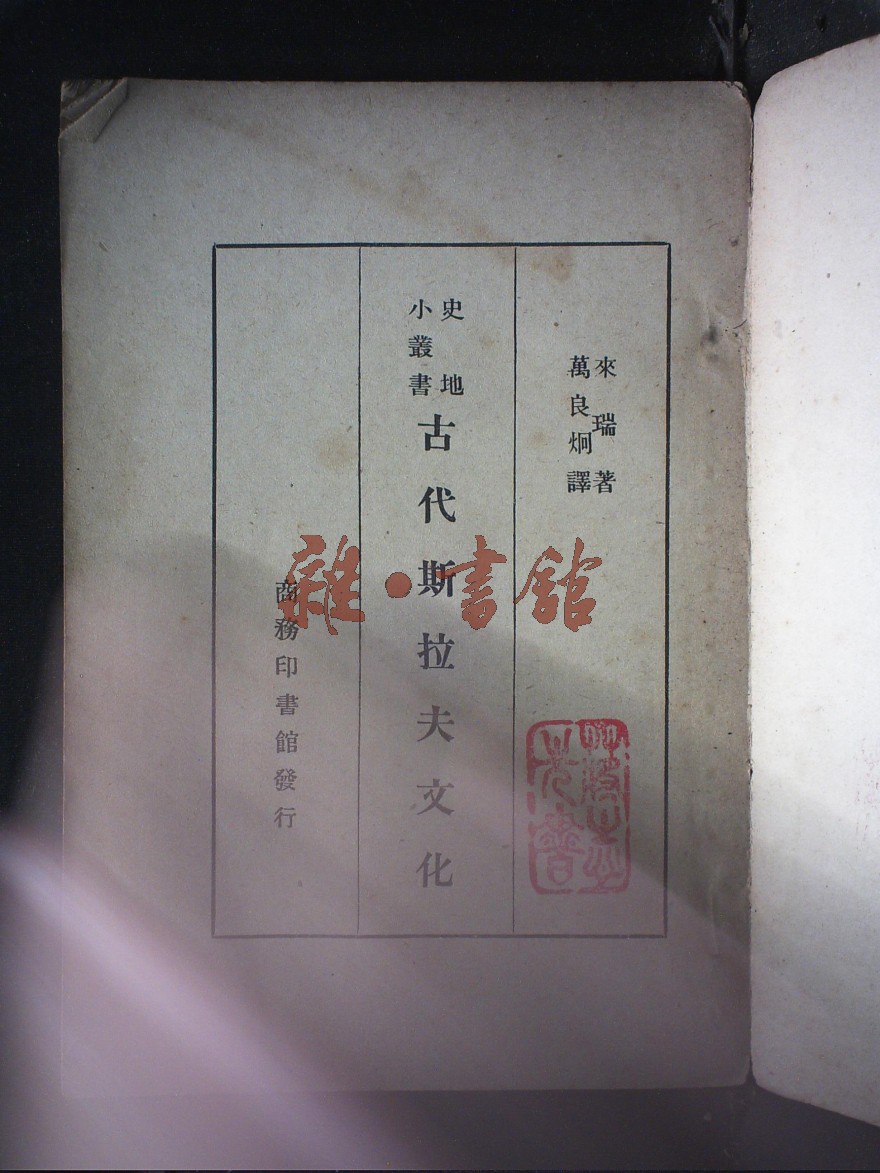 來瑞著
萬良炯譯
史地
小叢書
古代斯拉夫文化
商務印書館發行
雜·書館